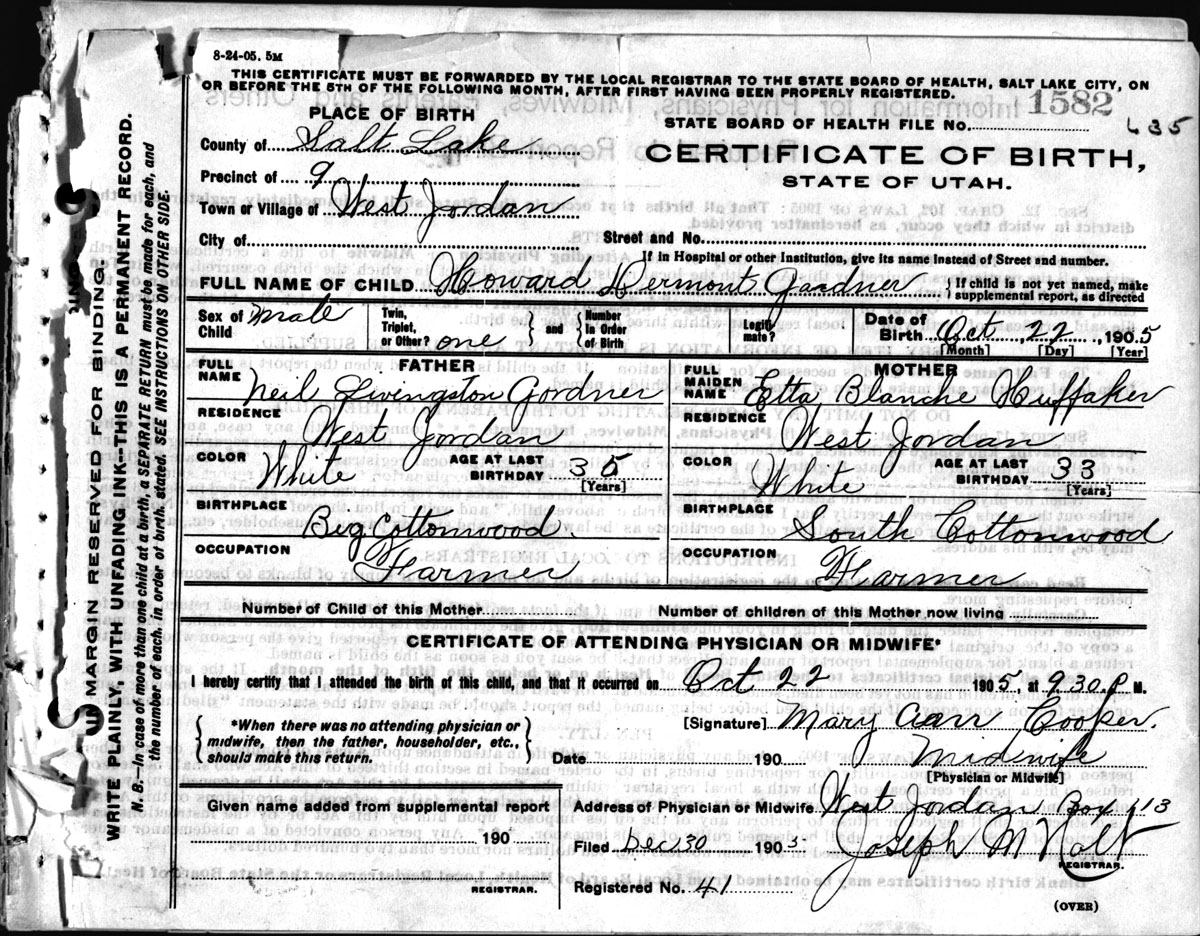 8-24-05. 5M
THIS CERTIFICATE MUST BE FORWARDED BY THE LOCAL REGISTRAR TO THE STATE BOARD OF HEALTH, SALT LAKE CITY, ON
OR BEFORE THE 5TH OF THE FOLLOWING MONTH, AFTER FIRST HAVING BEEN PROPERLY REGISTERED.
PLACE OF BIRTH
County of Salt Lake
Precinct of 9
Town or Village of West Jordan
1582
STATE BOARD OF HEALTH FILE No. 635
CERTIFICATE OF BIRTH,
STATE OF UTAH.
City of Street and No.
If in Hospital or other Institution, give its name instead of Street and number.
FULL NAME OF CHILD Howard Vermont Gardner } If child is not yet named, make supplemental report, as directed
Sex of Child Male Twin, Triplet, or Other? one } and { Number in Order of Birth Legitimate? Date of Birth Oct, 22, 1905
[Month] [Day] [Year]
FATHER
FULL NAME Neil Livingston Gardner
RESIDENCE West Jordan
COLOR White AGE AT LAST BIRTHDAY 35
[Years]
BIRTHPLACE Big Cottonwood.
OCCUPATION Farmer
MOTHER
FULL MAIDEN NAME Etta Blanche Huffaker
RESIDENCE West Jordan
COLOR White AGE AT LAST BIRTHDAY 33
[Years]
BIRTHPLACE South Cottonwood
OCCUPATION Farmer
Number of Child of this Mother Number of children of this Mother now living
CERTIFICATE OF ATTENDING PHYSICIAN OR MIDWIFE*
I hereby certify that I attended the birth of this child, and that it occurred on Oct 22 1905, at 9.30 P M.
{ *When there was no attending physician or
midwife, then the father, householder, etc.,
should make this return. }
[Signature] Mary Ann Cooper.
Date 190 Midwife
[Physician or Midwife]
Given name added from supplemental report
190
REGISTRAR.
Address of Physician or Midwife West Jordan Box 113
Filed Dec 30 1905 Joseph M Holt
REGISTRAR.
Registered No. 41
(OVER)
MARGIN RESERVED FOR BINDING.
WRITE PLAINLY, WITH UNFADING INK--THIS IS A PERMANENT RECORD.
N. B.--In case of more than one child at a birth, a SEPARATE RETURN must be made for each, and
the number of each, in order of birth, stated. SEE INSTRUCTIONS ON OTHER SIDE.